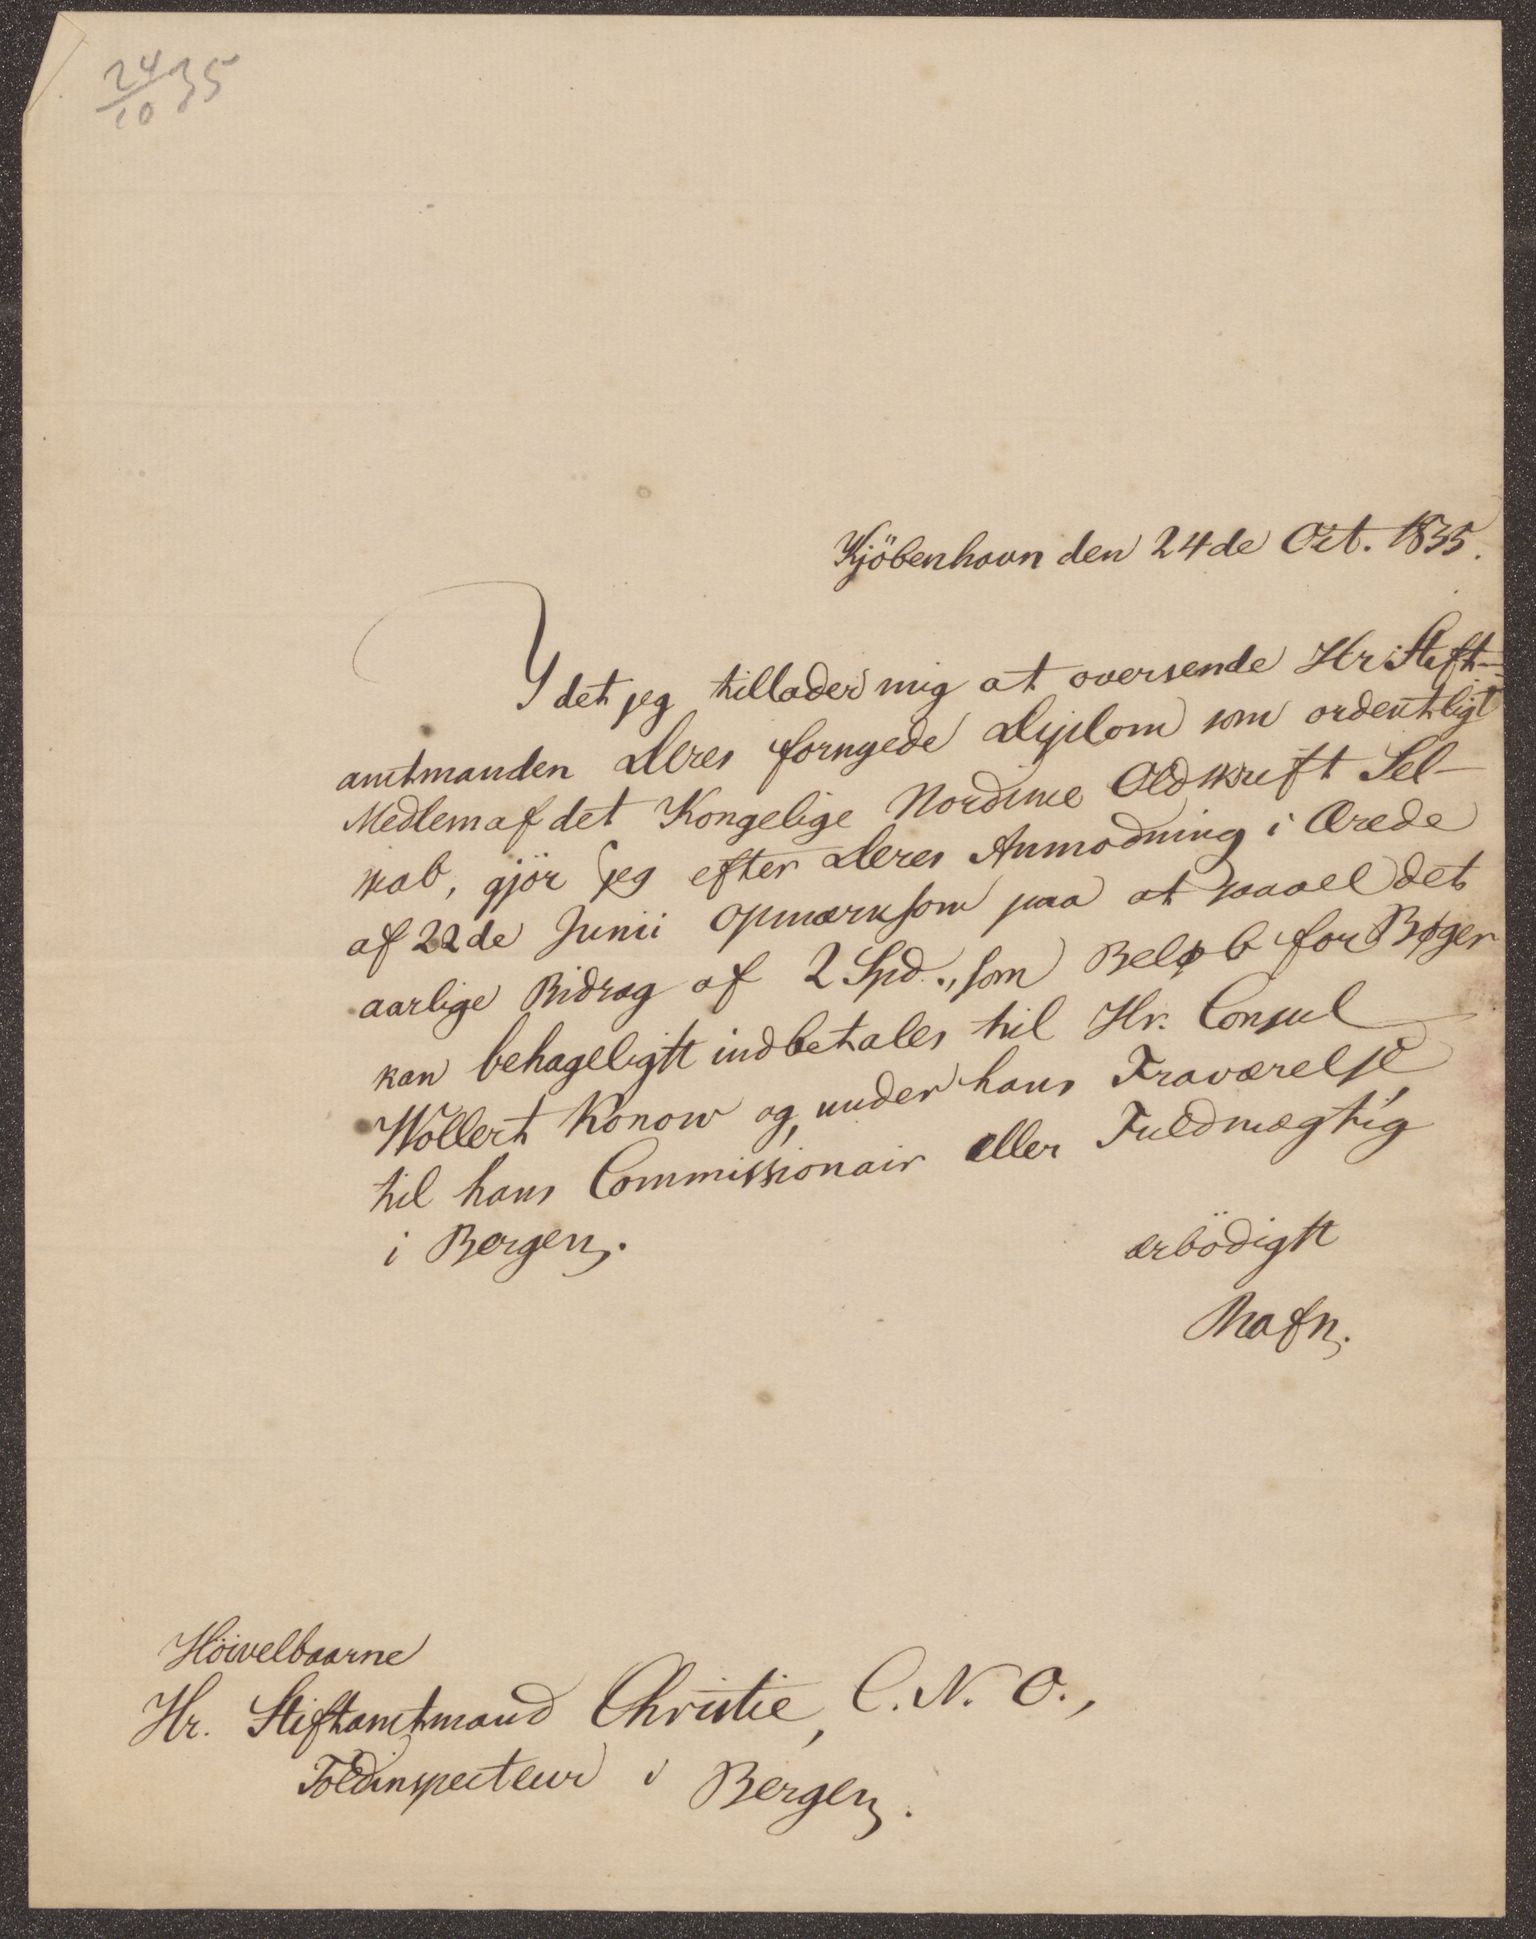 24/10 35
Kjöbenhavn den 24de Oct. 1835.
Idet jeg tillader mig at oversende Hr Stift-
amtmanden Deres fornyede Diplom som ordentligt
Medlem af det Kongelige Nordiske Oldskrift Sel-
skab, gjör jeg efter Deres Anmodning i Ærede
af 22de Junii opmærksom paa at saavel det
aarlige Bidrag af 2 Spd., som Beløb for Bøger
kan behageligst indbetales til Hr. Consul
Wollert Konow og, under hans Fraværelse
til hans Commissionair eller Fuldmægtig
i Bergen.
ærbödigst
Rafn.
Höivelbaarne
Hr. Stiftamtmand Christie, C. N. O.,
Toldinspecteur i Bergen.